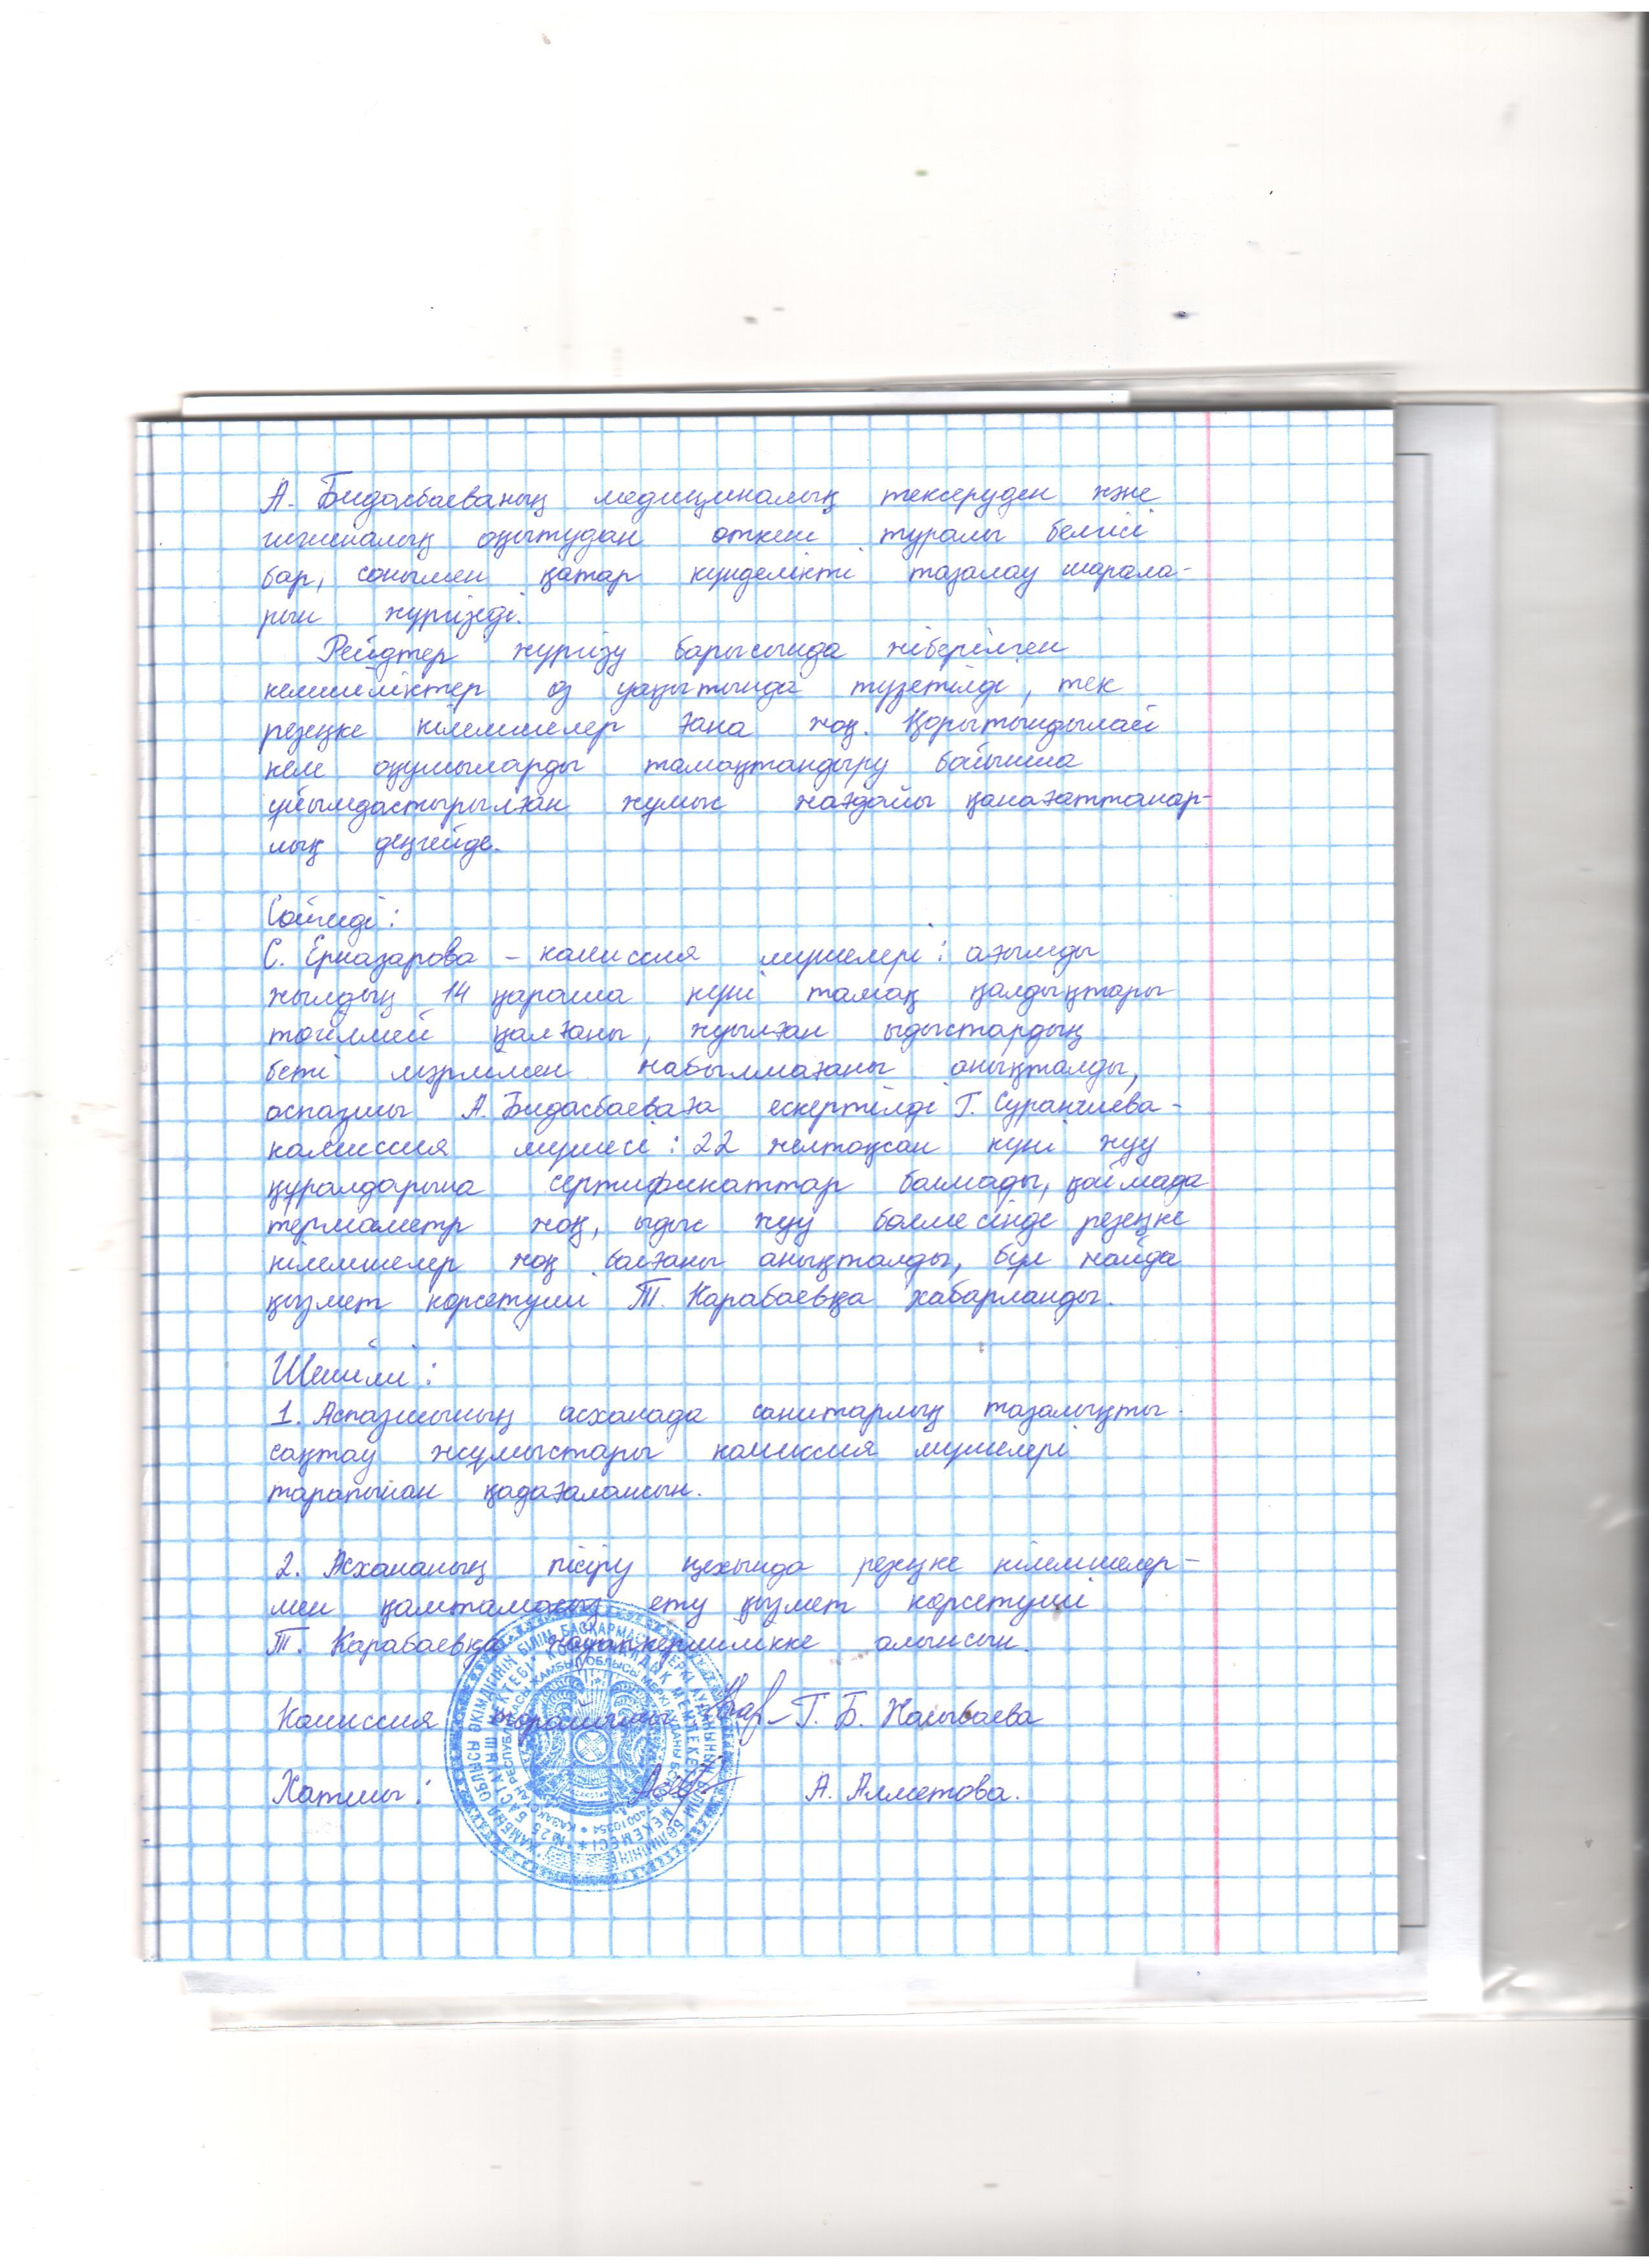 А. Бидасбаеваның медициналық тексеруден және
гигиеналық оқытудан өткені туралы белгісі
бар, сонымен қатар күнделікті тазалау шарала-
рын жүргізеді.
Рейдтер жүргізу барысында жіберілген
кемшіліктер өз уақытында түзетілді, тек
резеңке кілемшелер ғана жоқ. Қорытындылай
келе оқушыларды тамақтандыру бойынша
ұйымдастырылған жұмыс жағдайы қанағаттанар-
лық деңгейде.
Сөйледі:
С. Ерназарова - комиссия мүшелері: ағымды
жылдың 14 қараша күні тамақ қалдықтары
төгілмей қалғаны, жуылған ыдыстардың
беті мәрлімен жабылмағаны анықталды,
аспазшы А. Бидасбаеваға ескертілді Г. Суранчиева -
комиссия мүшесі: 22 желтоқсан күні жуу
құралдарына сертификаттар болмады, қоймада
термометр жоқ, ыдыс жуу бөлмесінде резеңке
кілемшелер жоқ болғаны анықталды, бұл жайда
қызмет көрсетуші Т. Карабаевқа хабарланды.
Шешімі:
1. Аспазшының асханада санитарлық тазалықты
сақтау жұмыстары комиссия мүшелері
тарапынан қадағалансын.
2. Асхананың пісіру цехында резеңке кілемшелер-
мен қамтамасыз ету қызмет көрсетуші
Т. Карабаевқа жауапкершілікке алынсын.
Комиссия төрайымы Г. Б. Налибаева
Хатшы: А. Алметова.